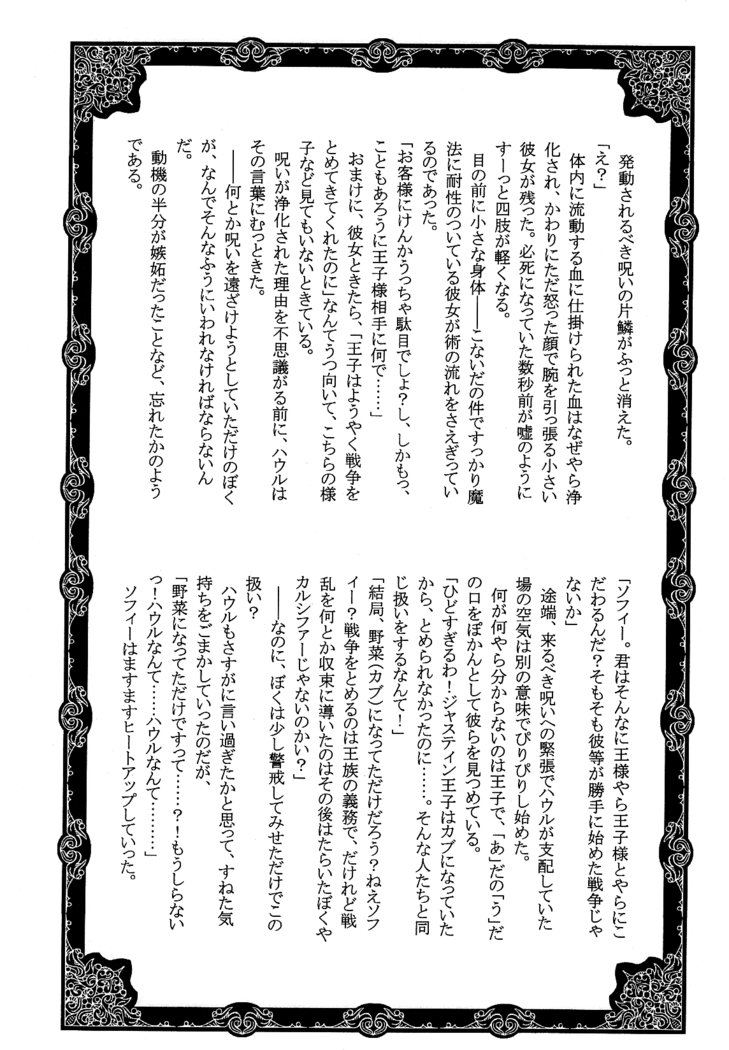 発動されるべき呪いの片鱗がふっと消えた。
「え？」
体内に流動する血に仕掛けられた血はなぜやら浄
化され、かわりにただ怒った顔で腕を引っ張る小さい
彼女が残った。必死になっていた数秒前が嘘のように
すーっと四肢が軽くなる。
目の前に小さな身体――こないだの件ですっかり魔
法に耐性のついている彼女が術の流れをさえぎってい
るのであった。
「お客様にけんかうっちゃ駄目でしょ？し、しかもっ、
こともあろうに王子様相手に何で……」
おまけに、彼女ときたら、「王子はようやく戦争を
とめてきてくれたのに」なんてうつ向いて、こちらの様
子など見てもいないときている。
呪いが浄化された理由を不思議がる前に、ハウルは
その言葉にむっときた。
――何とか呪いを遠ざけようとしていただけのぼく
が、なんでそんなふうにいわれなければならないん
だ。
動機の半分が嫉妬だったことなど、忘れたかのよう
である。
「ソフィー。君はそんなに王様やら王子様とやらにこ
だわるんだ？そもそも彼等が勝手に始めた戦争じゃ
ないか」
途端、来るべき呪いへの緊張でハウルが支配していた
場の空気は別の意味でぴりぴりし始めた。
何が何やら分からないのは王子で、「あ」だの「う」だ
の口をぽかんとして彼らを見つめている。
「ひどすぎるわ！ジャスティン王子はカブになっていた
から、とめられなかったのに……。そんな人たちと同
じ扱いをするなんて！」
「結局、野菜（カブ）になってただけだろう？ねえソフ
ィー？戦争をとめるのは王族の義務で、だけれど戦
乱を何とか収束に導いたのはその後はたらいたぼくや
カルシファーじゃないのかい？
――なのに、ぼくは少し警戒してみせただけでこの
扱い？
ハウルもさすがに言い過ぎたかと思って、すねた気
持ちをごまかしていったのだが、
「野菜になってただけですって……？！もうしらない
っ！ハウルなんて……ハウルなんて………」
ソフィーはますますヒートアップしていった。